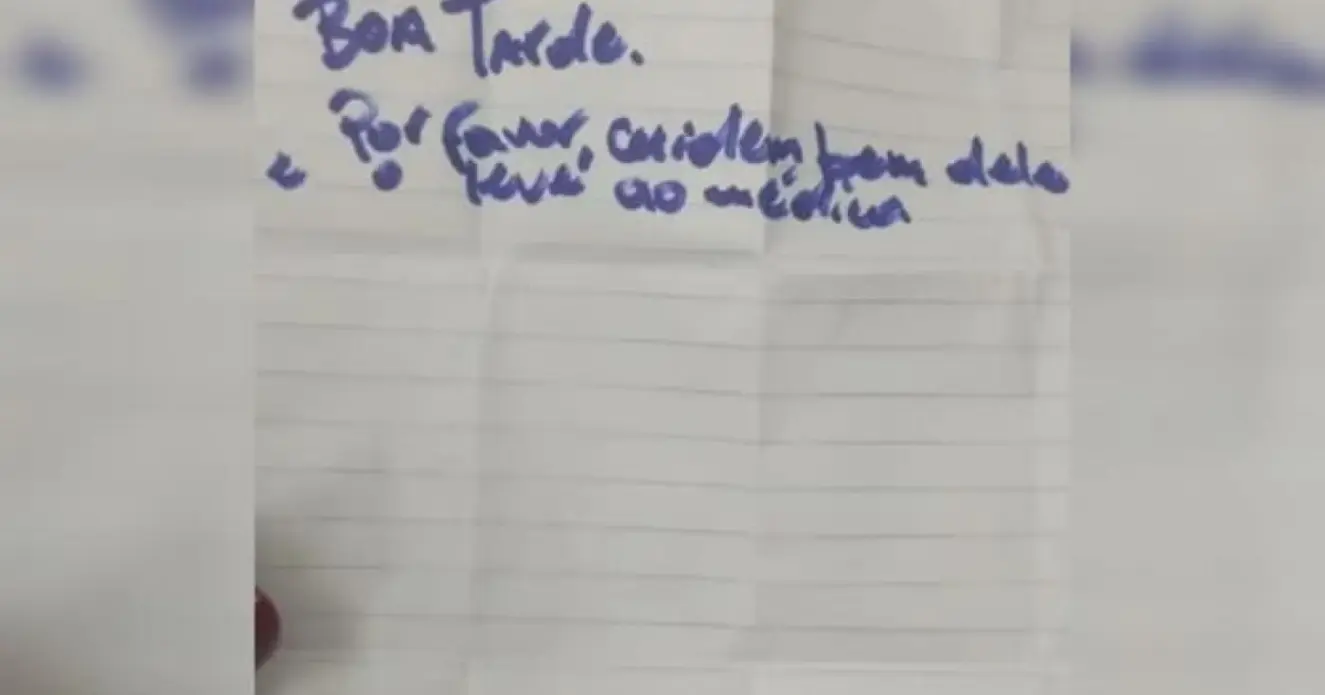 Boa Tarde.
Por favor, cuidem bem dele
e o leve ao médico